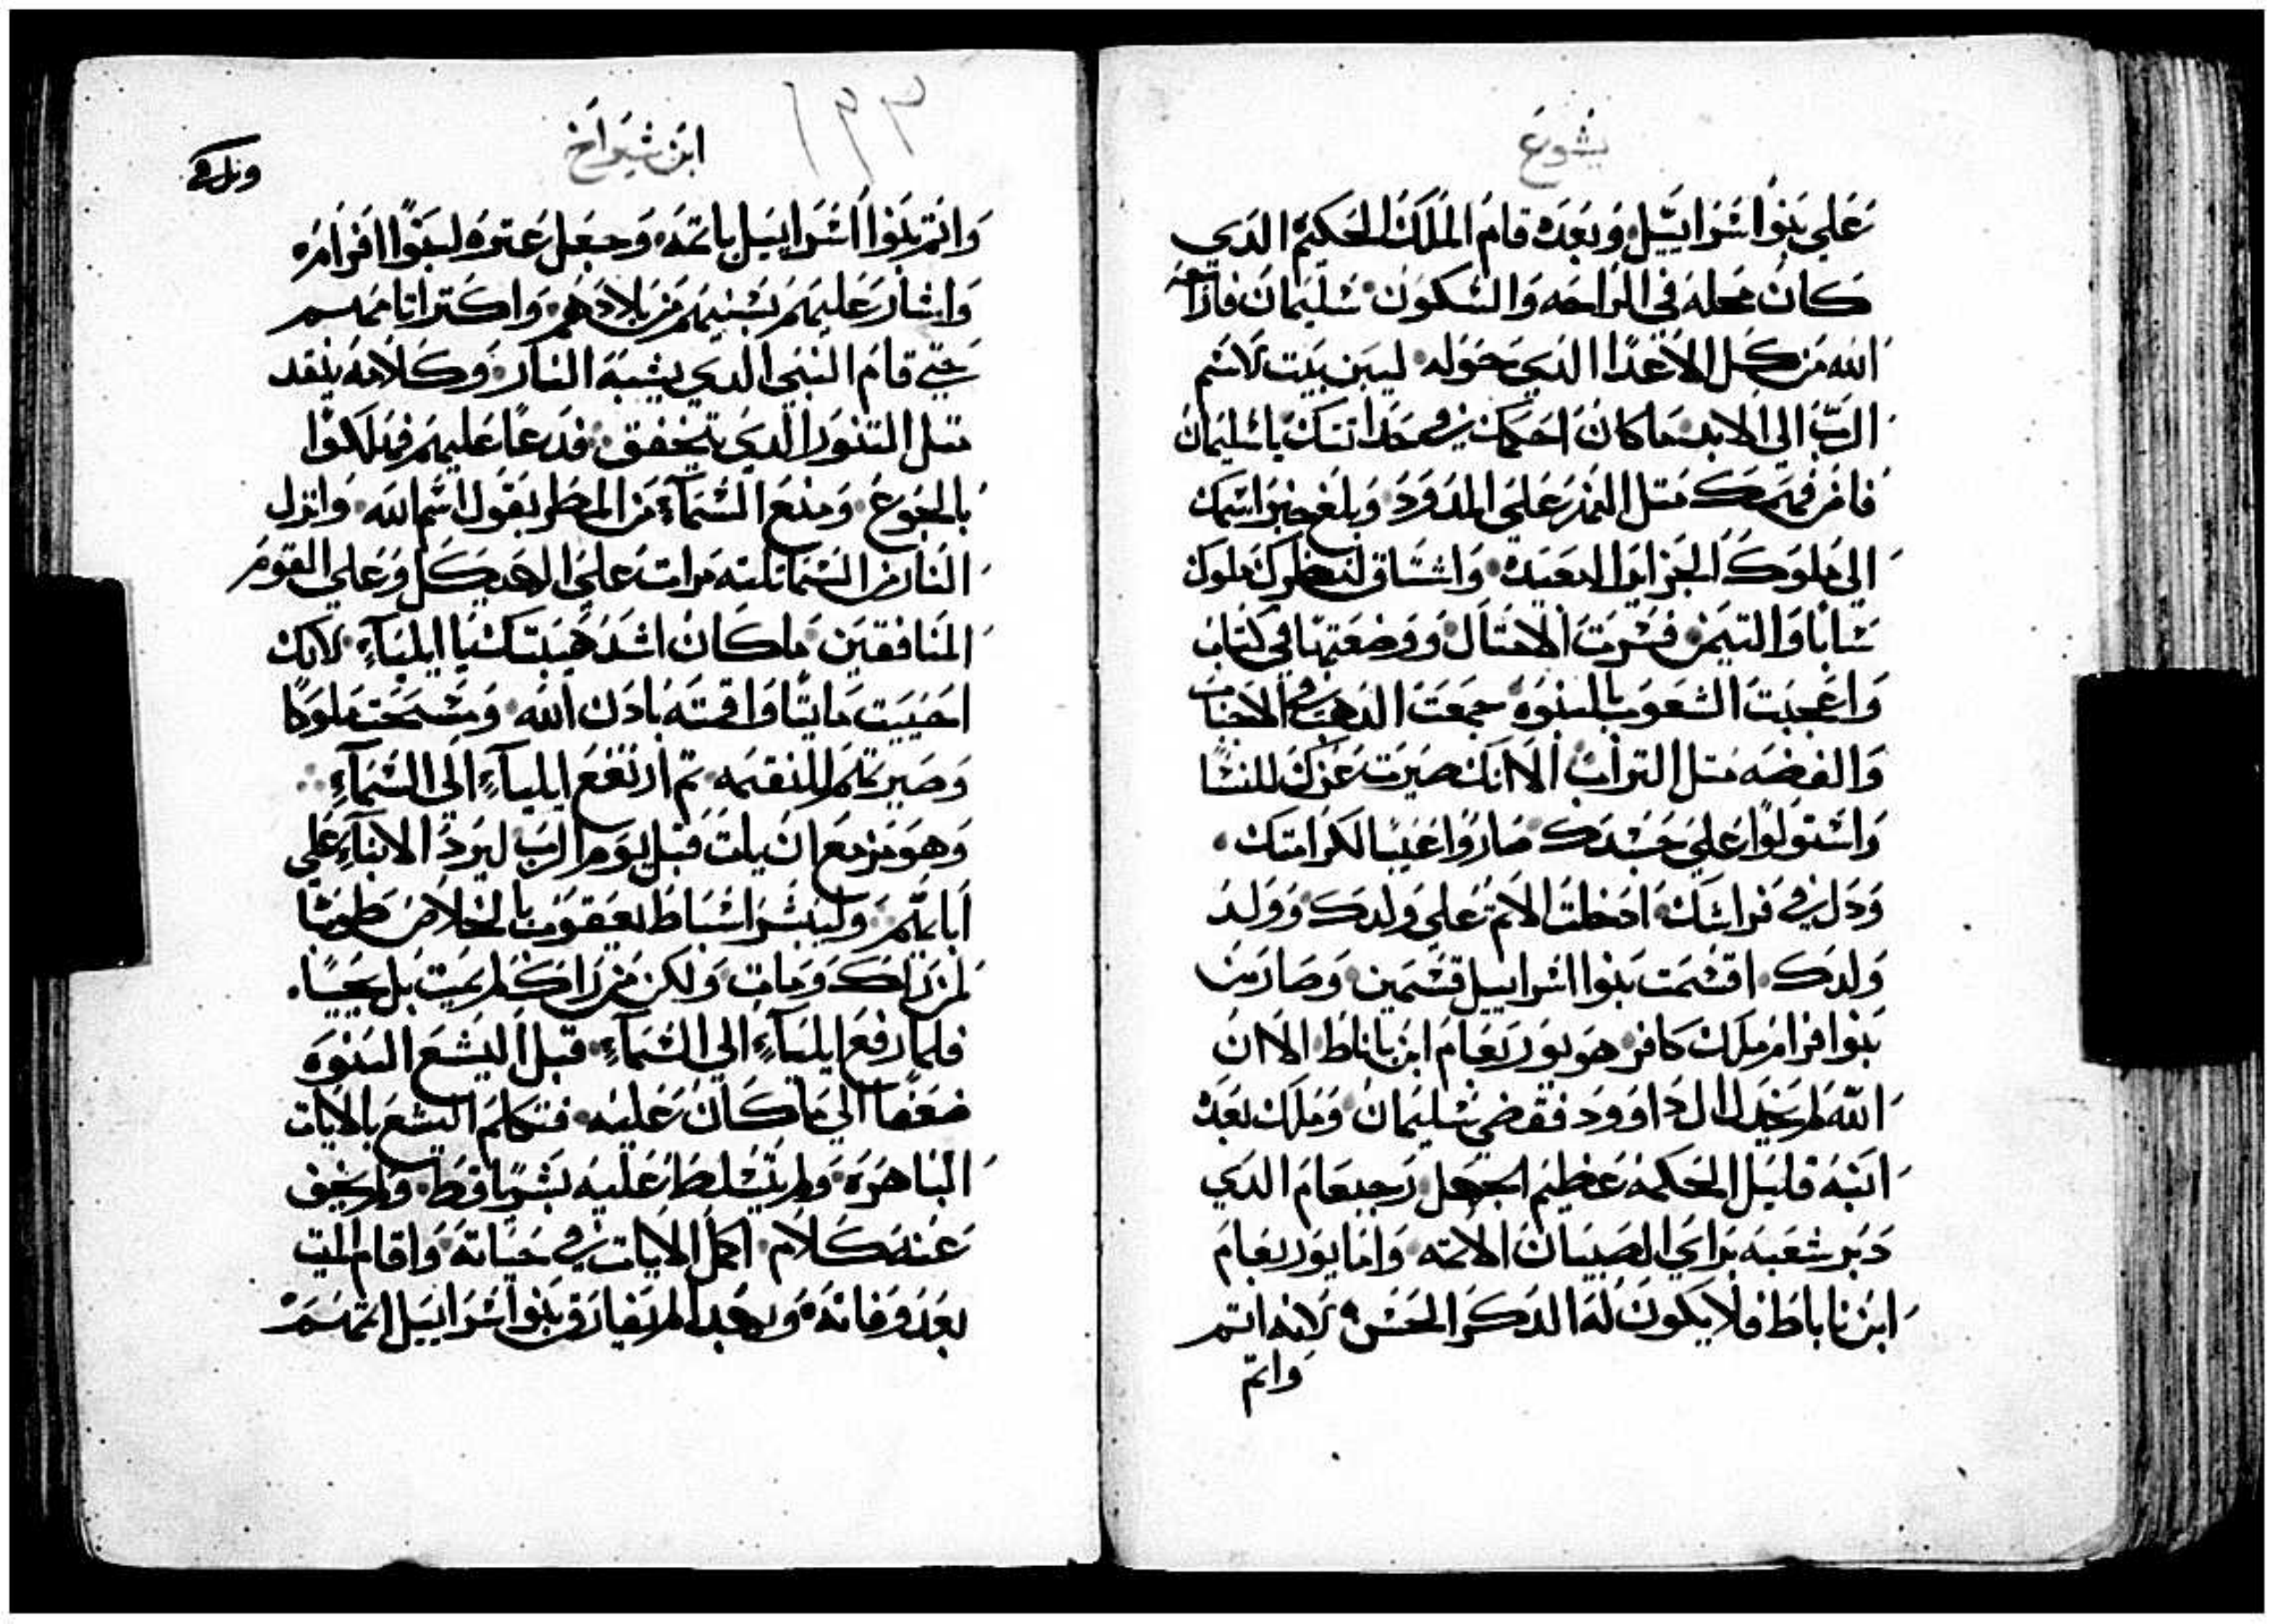 يشوع
علي بنوا اسراييل وبعده قام الملك الحكيم الدي
كان محله في الراحه والسكون سليمان فاراحه
الله من كل الاعدا الدي حوله ليبن بيت لاسم
الرب الي الابد ما كان احكمك في حداتتك ياسليمان
فامر فهمك متل النهر علي المدود وبلغ خبر اسمك
الي ملوك الجزاير البعيده واشتاق لنظرك ملوك
سابا والتيمن فسرت الامتال ووضعتها في كتاب
واعجبت الشعوب بالنبوه جمعت الدهب
والفضه متل التراب الا انك صيرت عزك للنسا
واستولوا علي جسدك صاروا عيبا لكرامتك
ودل في فراشك ادخلت الاتم علي ولدك وولد
ولدك اقتسمت بنوا اسراييل قسمين وصارت
بنوا افرام ملك كافر هو يوربعام ابن ناباط الا ان
الله لم يخيل ال داوود فقضي سليمان وملك بعده
ابنه قليل الحكمه عظيم الجهل رحبعام الدي
دبر شعبه براي الصبيان الاتمه واما يوربعام
ابن ناباط فلا يكون له الدكر الحسن لانه اتم
واتم
ابن شيراخ
١٩٣
واتم بنوا اسراييل باتمه وجعل عتره لبنوا افرام
واشار عليهم بسبيهم من بلادهم واكتر اتامهم
حتي قام النبي الدي يشبه النار وكلامه ينقد
متل التنور الدي يتخفق فدعا عليهم فهلكوا
بالجوع ومنع السماء من المطر بقول اسم الله وانزل
النار من السما تلته مرات علي الهيكل وعلي القوم
المنافقين ما كان اشد هيبتك يا ايلياء لانك
احييت مايتا واقمته بادن الله ومسحت ملوكا
وصيرتهم للنقمه تم ارتفع ايلياء الي السماء
وهو مزمع ان يات قبل يوم الرب ليرد الابناء علي
اباتهم وليبشر اسباط يعقوب بالخلاص طوبا
لمن راك ومات ولكن من راك لم يميت بل يحيا
فلما رفع ايلياء الي السماء قبل اليسع النبوه
ضعفا الي ما كان عليه فتكلم اليسع بالايات
الباهره ولم يتسلط عليه بشريا قط ولم يخف
عنه كلام اكمل الايات في حياته واقام الميت
بعد وفاته وبهدا لم يفارق بنوا اسراييل اتمهم